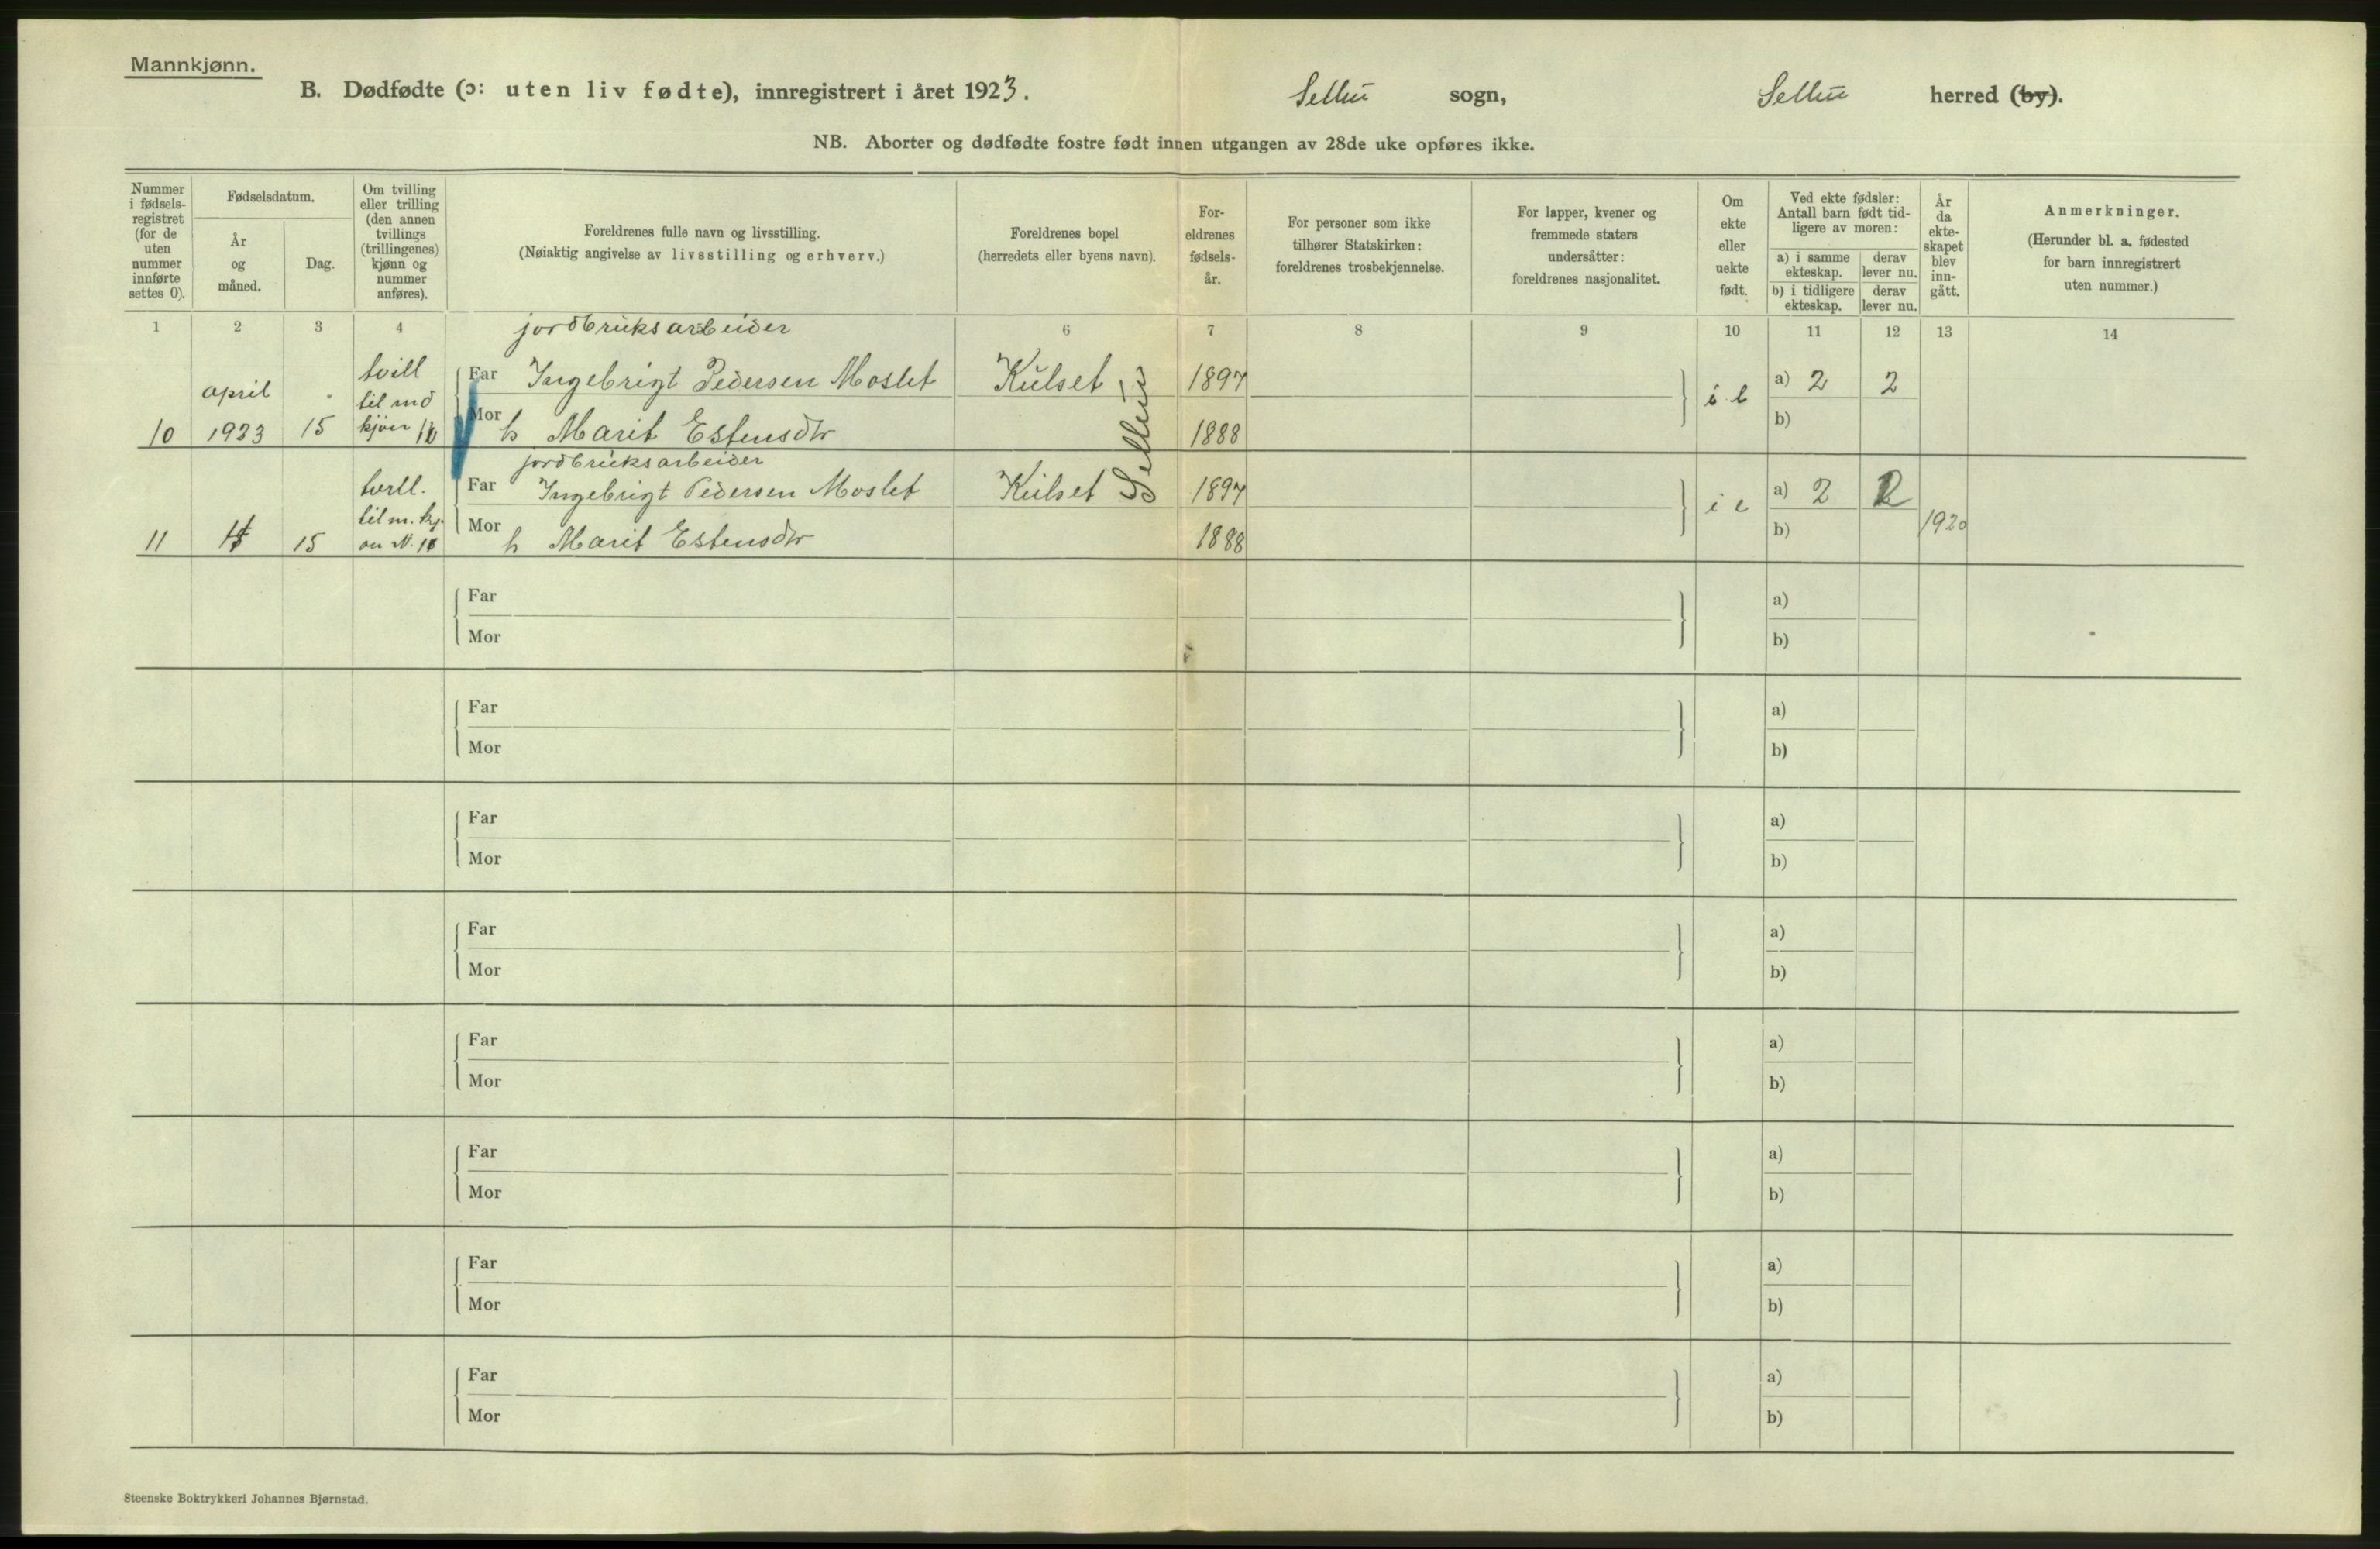 Mannkjønn.
B. Dødfødte (ɔ: uten liv fødte), innregistrert i året 1923. Selbu sogn, Selbu herred (by).
NB. Aborter og dødfødte fostre født innen utgangen av 28de uke opføres ikke.
Nummer i fødselsregistret (for de uten nummer innførte settes 0).
Fødselsdatum.
År og måned.
Dag.
Om tvilling eller trilling (den annen tvillings (trillingenes) kjønn og nummer anføres).
Foreldrenes fulle navn og livsstilling.
(Nøiaktig angivelse av livsstilling og erhverv.)
Foreldrenes bopel
(herredets eller byens navn).
Foreldrenes fødselsår.
For personer som ikke tilhører Statskirken: foreldrenes trosbekjennelse.
For lapper, kvener og fremmede staters undersåtter: foreldrenes nasjonalitet.
Om ekte eller uekte født.
Ved ekte fødsler: Antall barn født tidligere av moren:
a) i samme ekteskap.
derav lever nu.
b) i tidligere ekteskap.
derav lever nu.
År da ekteskapet blev inngått.
Anmerkninger.
(Herunder bl. a. fødested for barn innregistrert uten nummer.)
1 2 3 4 6 7 8 9 10 11 12 13 14
jordbruksarbeider
tvill
april til md Far Ingebrigt Pedersen Moslet Kulset 1897 a) 2 2
10 1923 15 kjøn Mor h Marit Estensdtr Selbu 1888 b)
jordbruksarbeider
tvill. Far Ingebrigt Pedersen Moslet Kulset 1897 i e a) 2 2
til m. kj.
11 15 Mor h Marit Estensdtr 1888 b) 1920
Far a)
Mor b)
Far a)
Mor b)
Far a)
Mor b)
Far a)
Mor b)
Far a)
Mor b)
Far a)
Mor b)
Far a)
Mor b)
Far a)
Mor b)
Steenske Boktrykkeri Johannes Bjørnstad.